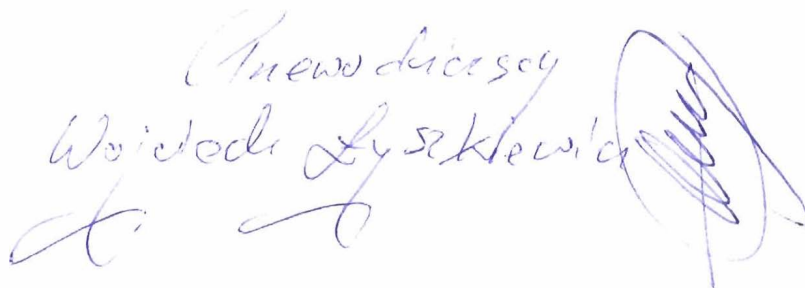 Przewodniczący
Wojciech Łyszkiewicz